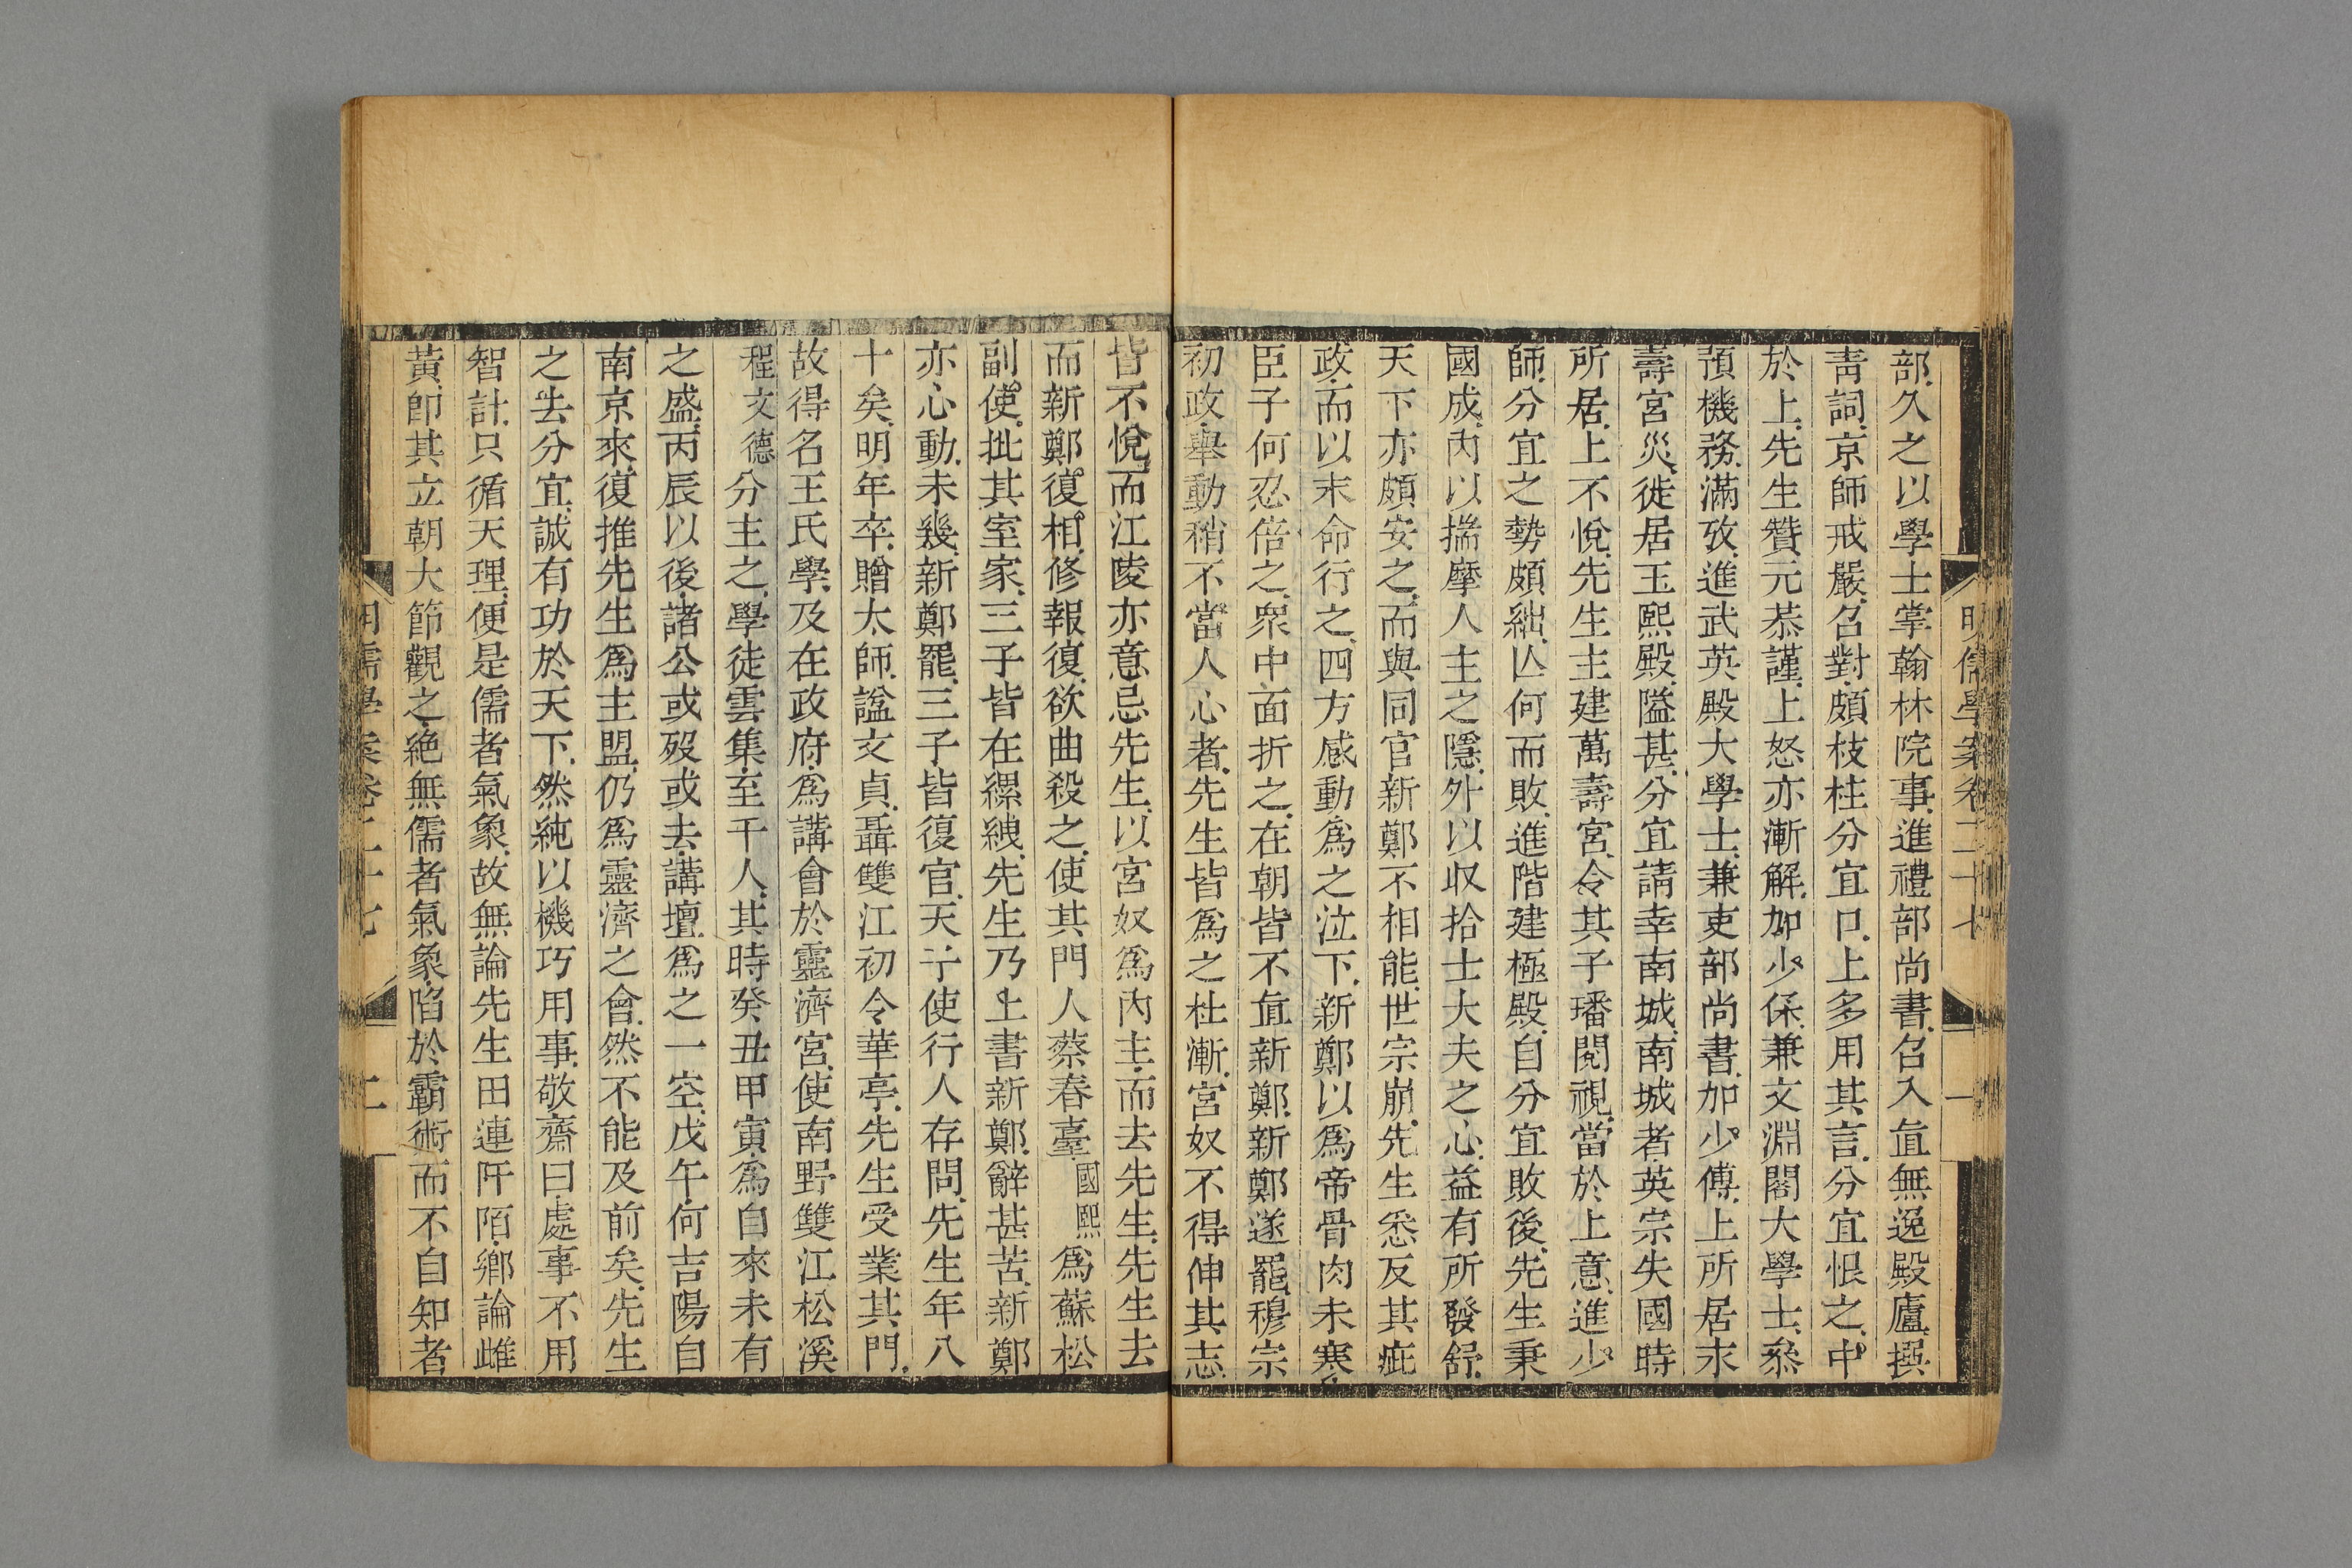 明儒學案卷二十七
一
部久之以學士掌翰林院事進禮部尚書召入直無逸殿廬撰
靑詞京師戒嚴召對頗枝柱分宜口上多用其言分宜恨之中
於上先生贊元恭謹上怒亦漸解加少保兼文淵閣大學士叅
預機務滿攷進武英殿大學士兼吏部尚書加少傅上所居永
壽宮災徙居玉熙殿隘甚分宜請幸南城南城者英宗失國時
所居上不悅先生主建萬壽宮令其子璠閱視當於上意進少
師分宜之勢頗絀亾何而敗進階建極殿自分宜敗後先生秉
國成內以揣摩人主之隱外以收拾士大夫之心益有所發舒
天下亦頗安之而與同官新鄭不相能世宗崩先生悉反其疵
政而以末命行之四方感動爲之泣下新鄭以爲帝骨肉未寒
臣子何忍倍之衆中面折之在朝皆不直新鄭新鄭遂罷穆宗
初政舉動稍不當人心者先生皆爲之杜漸宮奴不得伸其志
皆不悅而江陵亦意忌先生以宮奴爲內主而去先生先生去
而新鄭復相修報復欲曲殺之使其門人蔡春臺國熙爲蘇松
副使批其室家三子皆在縲絏先生乃上書新鄭辭甚苦新鄭
亦心動未幾新鄭罷三子皆復官天子使行人存問先生年八
十矣明年卒贈太師諡文貞聶雙江初令華亭先生受業其門
故得名王氏學及在政府爲講會於靈濟宮使南野雙江松溪
程文德分主之學徒雲集至千人其時癸丑甲寅爲自來未有
之盛丙辰以後諸公或歿或去講壇爲之一空戊午何吉陽自
南京來復推先生爲主盟仍爲靈濟之會然不能及前矣先生
之去分宜誠有功於天下然純以機巧用事敬齋曰處事不用
智計只循天理便是儒者氣象故無論先生田連阡陌鄉論雌
黃卽其立朝大節觀之絕無儒者氣象陷於霸術而不自知者
明儒學案卷二十七
二